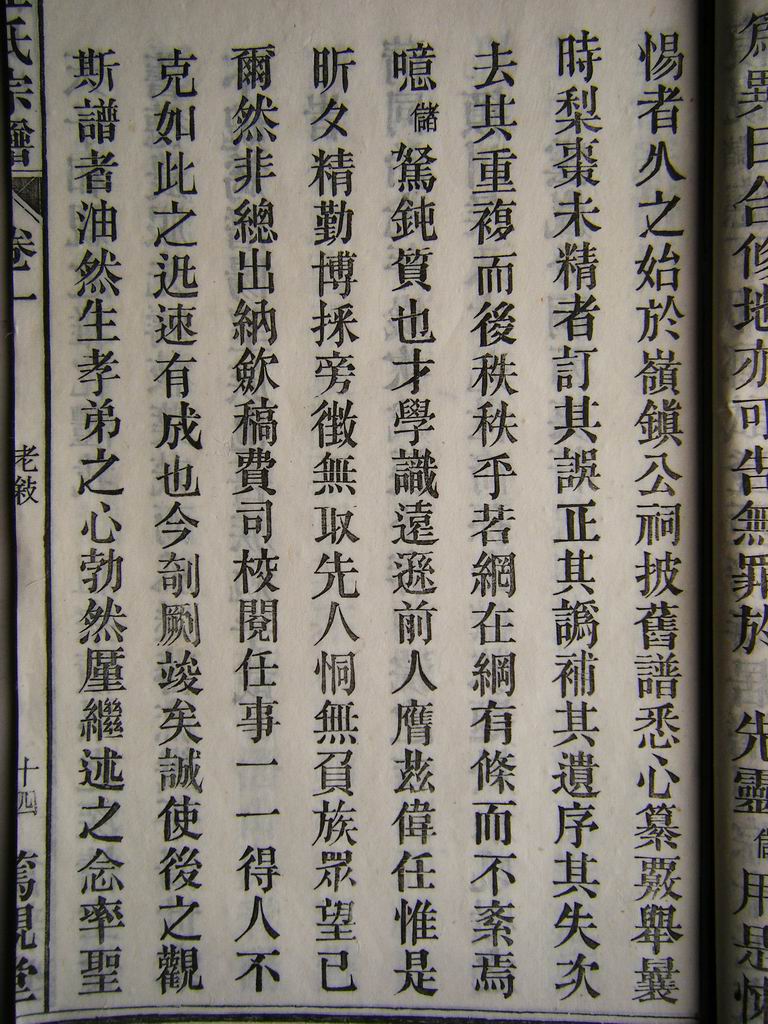 爲異日合修地亦可告無罪於 先靈儲用是
惕者久之始於嶺鎮公祠披舊譜悉心纂覈舉曩
時梨棗未精者訂其誤正其譌補其遺序其失次
去其重複而後秩秩乎若網在綱有條而不紊焉
噫儲駑鈍質也才學識遠遜前人膺茲偉任惟是
昕夕精勤博採旁徵無取先人恫無負族眾望已
爾然非總出納歛稿費司校閱任事一一得人不
克如此之迅速有成也今剞劂竣矣誠使後之觀
斯譜者油然生孝弟之心勃然厪繼述之念率聖
氏宗譜 卷一 老敍 十四